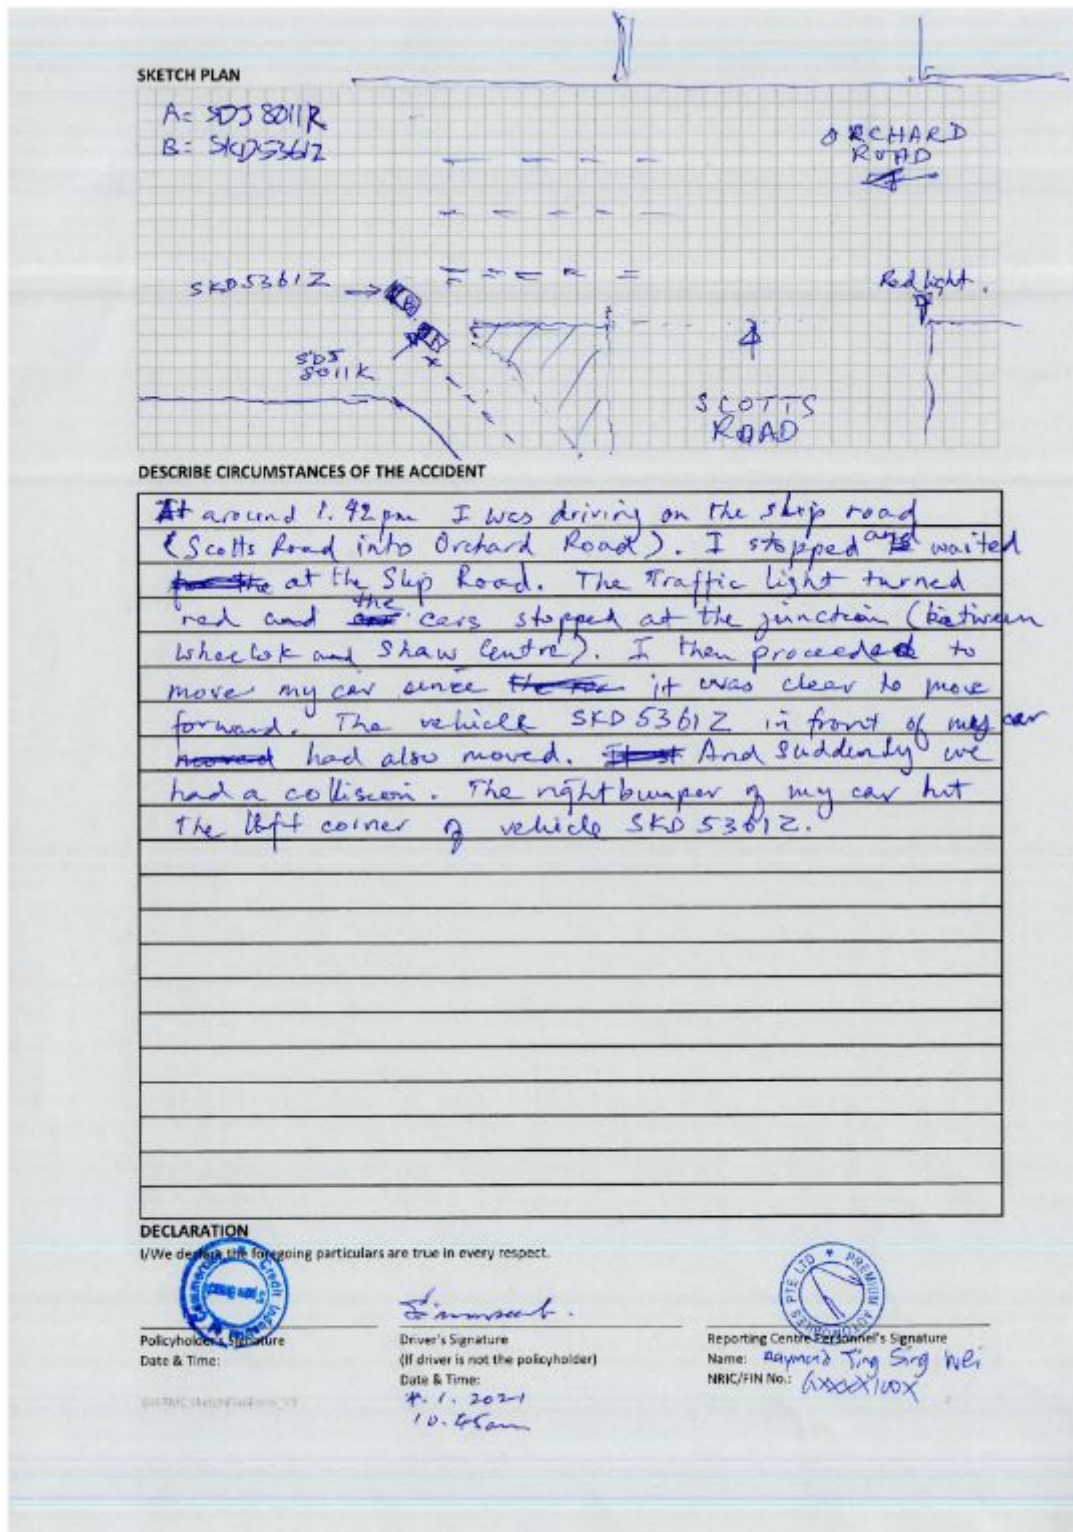 SKETCH PLAN
A= SDJ 8011R
B= SKD5361Z
ORCHARD
ROAD
SKD5361Z
Red light.
SDJ
8011K
SCOTTS
ROAD
DESCRIBE CIRCUMSTANCES OF THE ACCIDENT
At around 1.42pm I was driving on the slip road
(Scotts Road into Orchard Road). I stopped and waited
at the Slip Road. The Traffic light turned
red and the cars stopped at the junction (between
Wheelok and Shaw Centre). I then proceeded to
move my car since it was clear to move
forward. The vehicle SKD 5361Z in front of my car
had also moved. And suddenly we
had a collision. The right bumper of my car hit
the left corner of vehicle SKD 5361Z.
DECLARATION
I/We declare the foregoing particulars are true in every respect.
PREMIUM AUTOMOBILES PTE LTD
Policyholder's Signature
Date & Time:
Driver's Signature
(If driver is not the policyholder)
Date & Time:
1. 2021
10.45am
Reporting Centre Personnel's Signature
Name: Raymond Ting Sing Wei
NRIC/FIN No.: